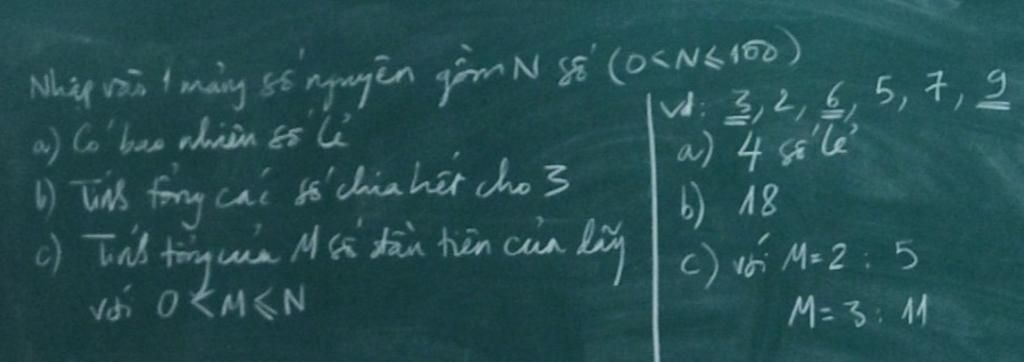 Nhập vào 1 mảng số nguyên gồm N số (0<N≤100)
a) Có bao nhiêu số lẻ
b) Tính tổng các số chia hết cho 3
c) Tính tổng của M số đầu tiên của dãy
với 0<M≤N
vd: 3, 2, 6, 5, 7, 9
a) 4 số lẻ
b) 18
c) với M=2: 5
M=3: 11